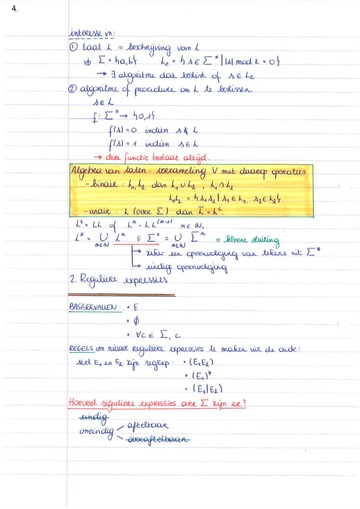 4.
interesse in:
① taal L = beschrijving van L
vb Σ = {a,b} L₂ = {s ∈ Σ* | |s| mod 2 = 0}
→ ∃ algoritme das beslist of s ∈ L₂
② algoritme of procedure om L te beslissen
s ∈ L
f: Σ* → {0,1}
f(s) = 0 indien s ∉ L
f(s) = 1 indien s ∈ L
→ deze functie bestaat altijd.
Algebra van talen: verzameling V met daarop operaties
- binair: L₁, L₂ dan L₁ ∪ L₂, L₁ ∩ L₂
L₁L₂ = {s₁s₂ | s₁ ∈ L₁, s₂ ∈ L₂}
- unair: L (over Σ) dan
L² = LL of n ∈ ℕ₀
= kleene sluiting
→ zeker een opeenvolging van tekens uit Σ*
→ eindig opeenvolging
2. Reguliere expressies
BASISGEVALLEN: • ε
• ∅
• ∀c ∈ Σ, c
REGELS om nieuwe reguliere expressies te maken uit de oude:
stel E₁ en E₂ zijn regExp: • (E₁E₂)
• (E₁)*
• (E₁|E₂)
Hoeveel reguliere expressies over Σ zijn er?
eindig
oneindig aftelbaar
overaftelbaar